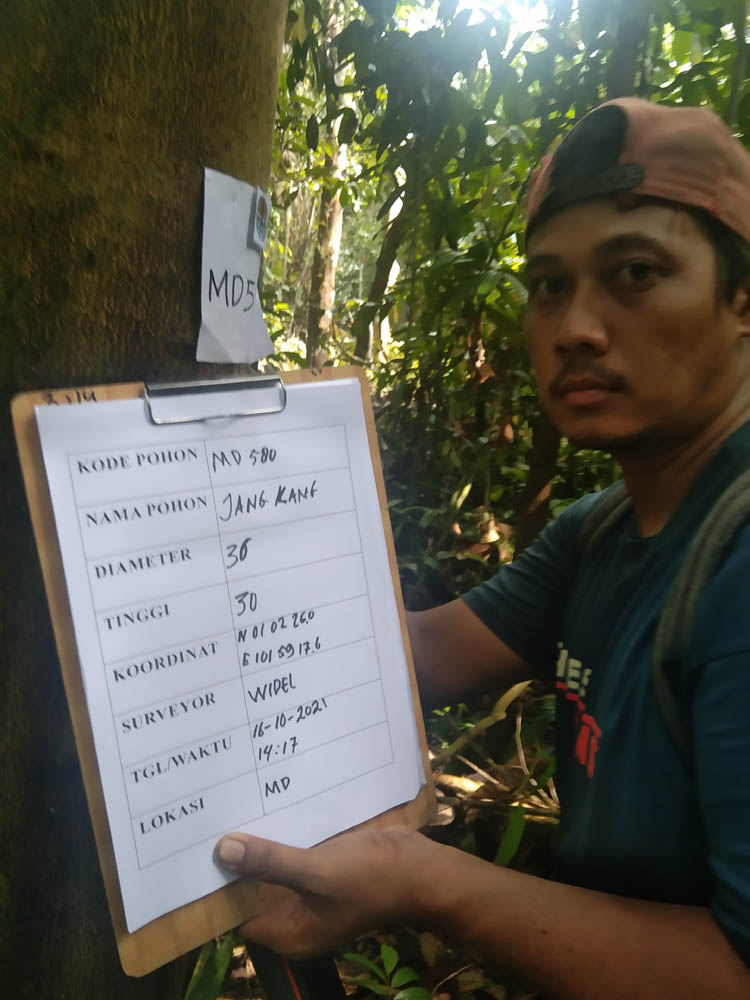 MD5
KODE POHON MD 580
NAMA POHON JANG KANG
DIAMETER 36
TINGGI 30
KOORDINAT N 01 02 26.0
E 101 59 17.6
SURVEYOR WIDEL
TGL/WAKTU 16-10-2021
14:17
LOKASI MD